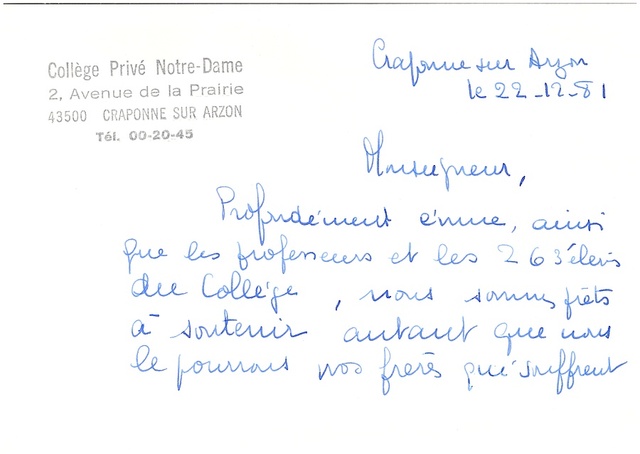 Collège Privé Notre-Dame
2, Avenue de la Prairie
43500 CRAPONNE SUR ARZON
Tél. 00-20-45
Craponne sur Arzon
le 22-12-81
Monseigneur,
Profondément émue, ainsi
que les professeurs et les 263 élèves
du Collège, nous sommes prêts
à soutenir autant que nous
le pourrons nos frères qui souffrent